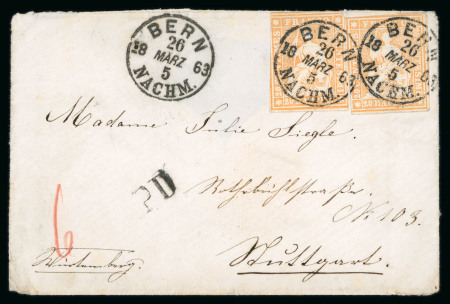 BERN
18 26 63
MÄRZ
5
NACHM.
BERN
18 26 63
MÄRZ
5
NACHM.
BERN
18 26 63
MÄRZ
5
NACHM.
Madame Julie Siegle.
PD
Rothebühlstraße.
No 103.
6
Würtemberg.
Stuttgart.